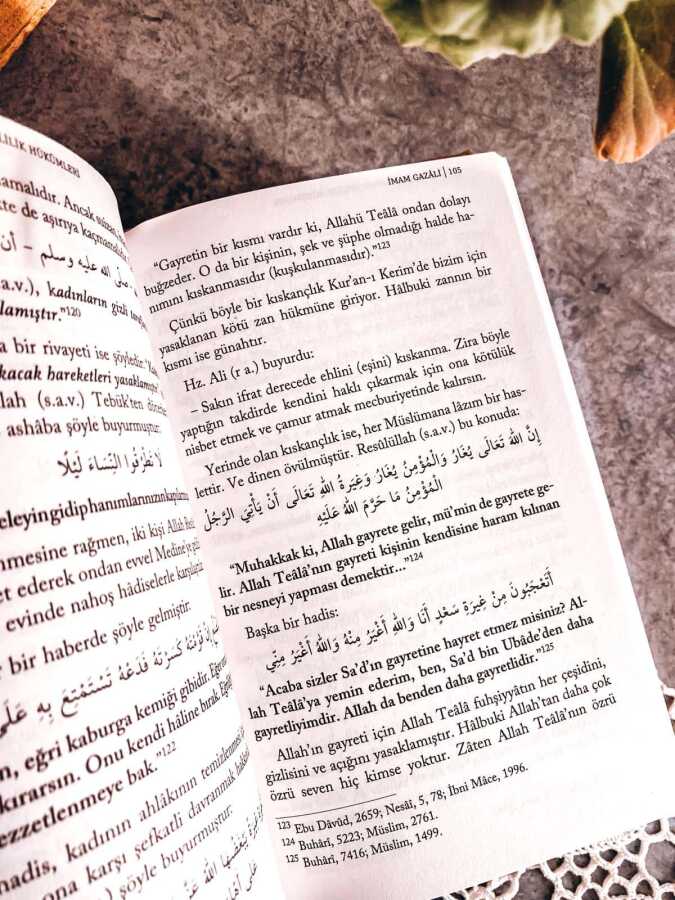 LİLİK HÜKÜMLERİ
amalıdır. Ancak
kte de aşırıya kaçmamalıdır.
صلى الله عليه وسلم – أن
(s.a.v.), kadınların gizli
lamıştır."120
a bir rivayeti ise şöyledir:
kacak hareketleri yasaklamıştır
llah (s.a.v.) Tebük'ten
ashâba şöyle buyurmuştur:
لَا تَطْرُقُوا النِّسَاءَ لَيْلًا
eleyin gidip hanımlarınızın
nmesine rağmen, iki kişi Allah
et ederek ondan evvel Medine'ye
evinde nahoş hâdiselerle
r bir haberde şöyle gelmiştir:
قَوَّمْتَهُ كَسَرْتَهُ فَدَعْهُ تَسْتَمْتِعْ بِهِ عَلَى
n, eğri kaburga kemiği gibidir. Eğer
kırarsın. Onu kendi hâline bırak.
ezzetlenmeye bak."122
hadis, kadının ahlâkının
ona karşı şefkatli davranmak
) şöyle buyurmuştur:
İMAM GAZÂLİ | 105
"Gayretin bir kısmı vardır ki, Allahü Teâlâ ondan dolayı
buğzeder. O da bir kişinin, şek ve şüphe olmadığı halde ha-
nımını kıskanmasıdır (kuşkulanmasıdır)."123
Çünkü böyle bir kıskançlık Kur'an-ı Kerim'de bizim için
yasaklanan kötü zan hükmüne giriyor. Hâlbuki zannın bir
kısmı ise günahtır.
Hz. Ali (r a.) buyurdu:
– Sakın ifrat derecede ehlini (eşini) kıskanma. Zira böyle
yaptığın takdirde kendini haklı çıkarmak için ona kötülük
nisbet etmek ve çamur atmak mecburiyetinde kalırsın.
Yerinde olan kıskançlık ise, her Müslümana lâzım bir has-
lettir. Ve dinen övülmüştür. Resûlüllah (s.a.v.) bu konuda:
إِنَّ اللهَ تَعَالَى يَغَارُ وَالْمُؤْمِنُ يَغَارُ وَغَيْرَةُ اللهِ تَعَالَى أَنْ يَأْتِيَ الرَّجُلُ
الْمُؤْمِنُ مَا حَرَّمَ اللهُ عَلَيْهِ
"Muhakkak ki, Allah gayrete gelir, mü'min de gayrete ge-
lir. Allah Teâlâ'nın gayreti kişinin kendisine haram kılınan
bir nesneyi yapması demektir..."124
Başka bir hadis:
أَتَعْجَبُونَ مِنْ غِيرَةِ سَعْدٍ أَنَا وَاللهِ أَغْيَرُ مِنْهُ وَاللهُ أَغْيَرُ مِنِّي
"Acaba sizler Sa'd'ın gayretine hayret etmez misiniz? Al-
lah Teâlâ'ya yemin ederim, ben, Sa'd bin Ubâde'den daha
gayretliyimdir. Allah da benden daha gayretlidir."125
Allah'ın gayreti için Allah Teâlâ fuhşiyyâtın her çeşidini,
gizlisini ve açığını yasaklamıştır. Hâlbuki Allah'tan daha çok
özrü seven hiç kimse yoktur. Zâten Allah Teâlâ'nın özrü
123 Ebu Dâvûd, 2659; Nesâî, 5, 78; İbni Mâce, 1996.
124 Buhârî, 5223; Müslim, 2761.
125 Buhârî, 7416; Müslim, 1499.